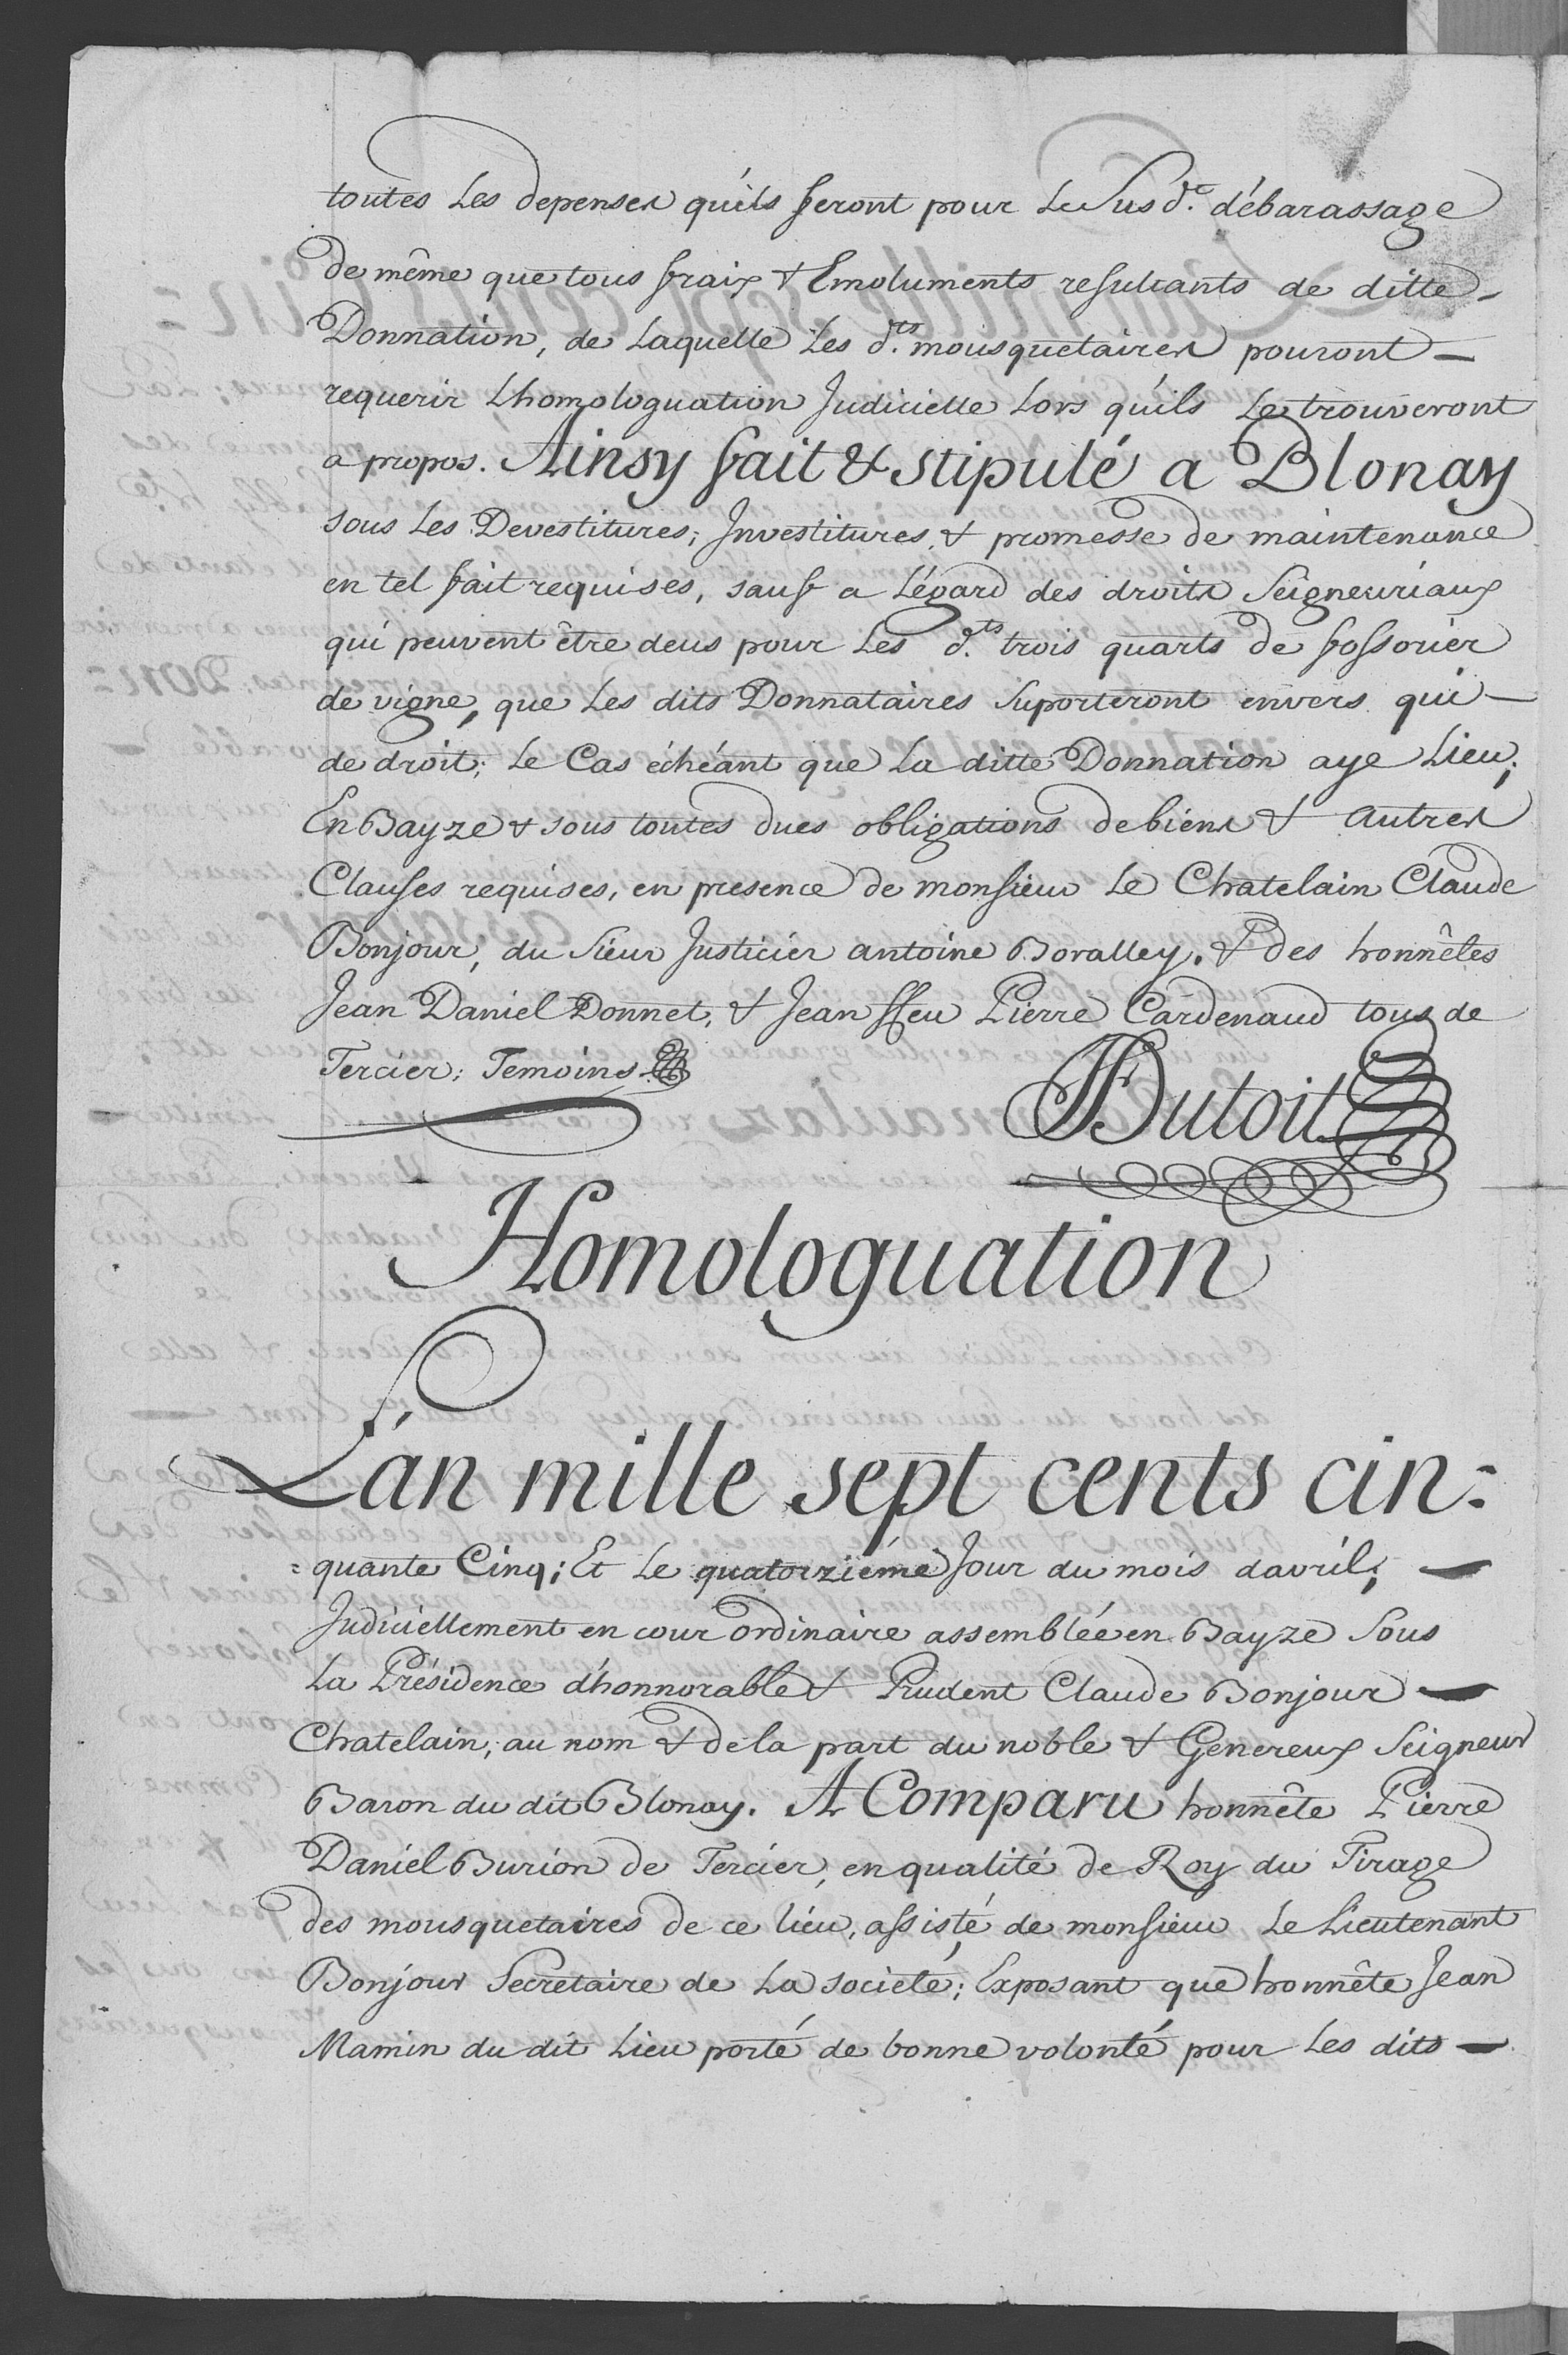 toutes Les depenses qu'ils feront pour Le Susd.t débarassage
de même que tous fraix & Emoluments resultants de ditte
Donnation, de Laquelle Les d.ts mousquetaires pouront
requerir Lhomologuation Judicielle Lors qu'ils Le trouveront
a propos. Ainsy fait & stipulé a Blonay
sous Les Devestitures; Investitures, & promesse de maintenance
en tel fait requises, sauf a L'égard des droits Seigneuriaux
qui peuvent être deus pour Les d.ts trois quarts de fossorier
de vigne, que Les dits Donnataires Suporteront envers qui
de droit; Le Cas échéant que La ditte Donnation aye Lieu;
En Bayze & sous toutes dues obligations de biens & autres
Clauses requises, en presence de monsieur Le Chatelain Claude
Bonjour, du Sieur Justicier antoine Boralley. & des honnêtes
Jean Daniel Donnet, & Jean ffeu Pierre Cardenaud tous de
Tercier; Temoins
Dutoit
Homologuation
L'an mille sept cents cin=
=quante Cinq; Et Le quatorziéme Jour du mois davril;
Judiciellement en cour ordinaire assemblée en Bayze Sous
La Présidence d'honnorable & Prudent Claude Bonjour
Chatelain, au nom & de la part du noble & Genereux Seigneur
Baron du dit Blonay. A Comparu honnête Pierre
Daniel Burion de Tercier, en qualité de Roy du Tirage
des mousquetaires de ce lieu, assisté de monsieur Le Lieutenant
Bonjour Secretaire de La societé; Exposant que honnête Jean
Mamin du dit Lieu porté de bonne volonté pour Les dits